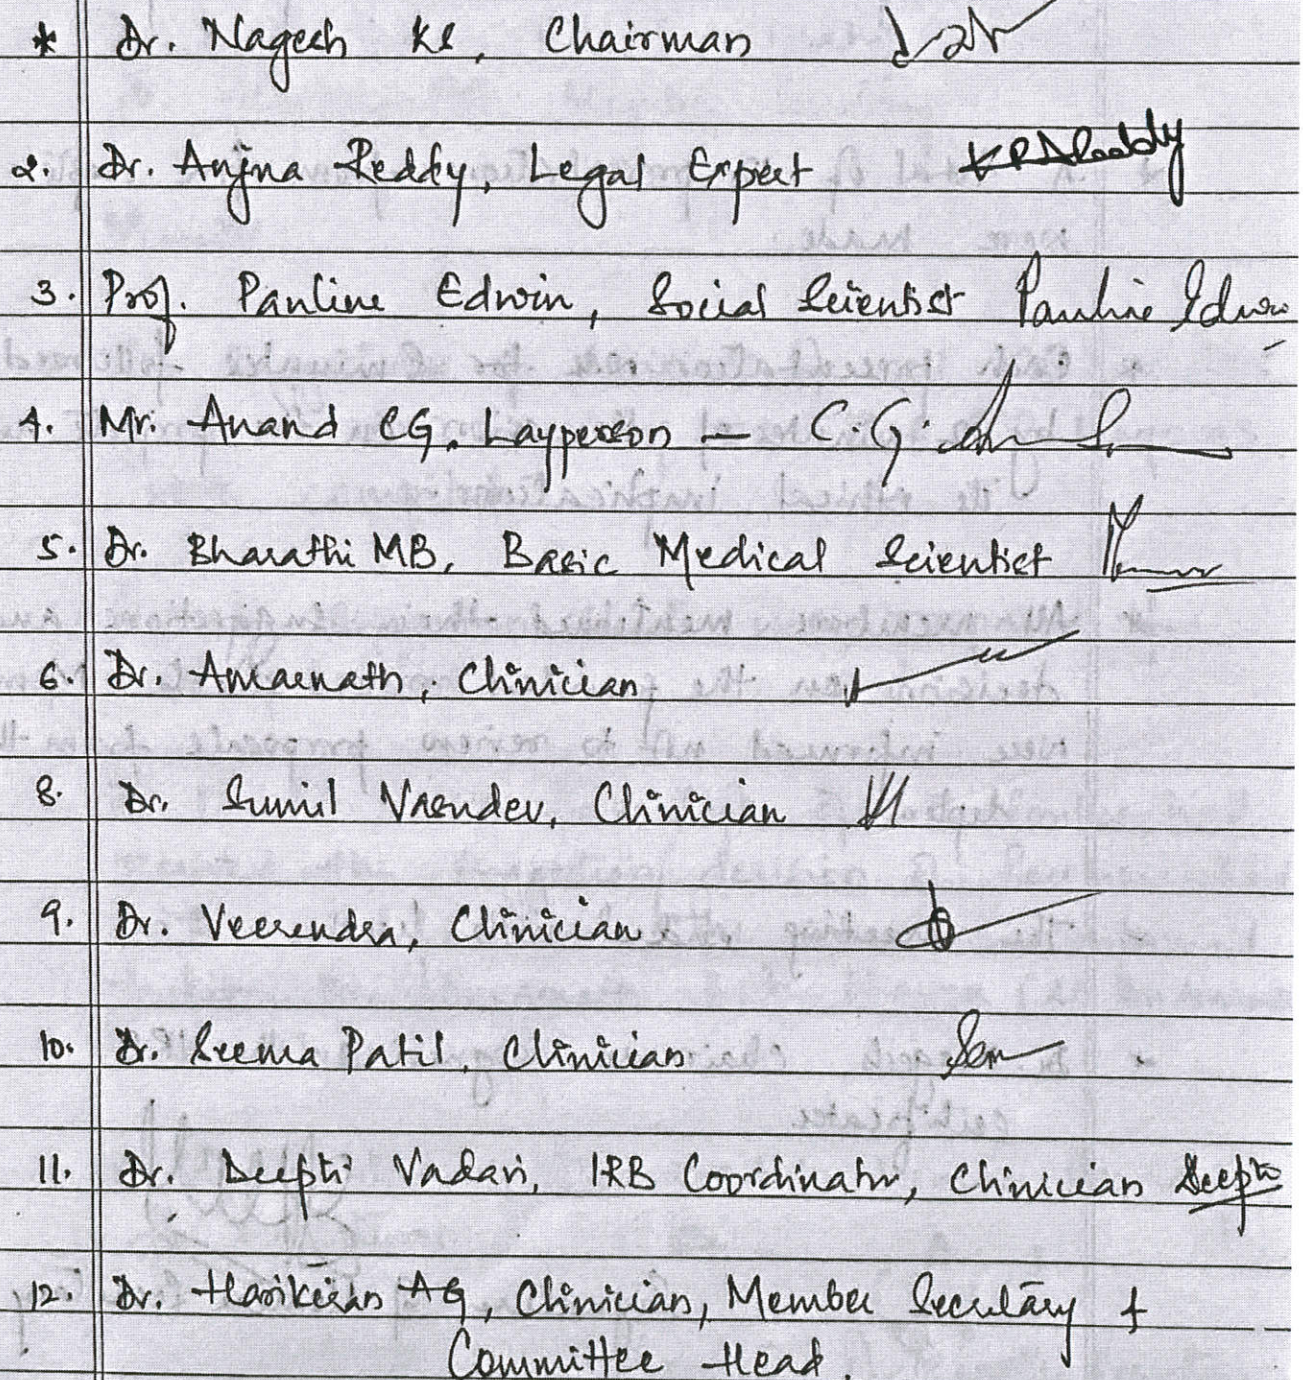 * Dr. Nagesh KS, Chairman
2. Dr. Anjna Reddy, Legal Expert KRAReddy
3. Prof. Pauline Edwin, Social Scientist Pauline Edwin
4. Mr. Anand CG, Layperson — C.G.
5. Dr. Bharathi MB, Basic Medical Scientist
6. Dr. Amarnath, Clinician
8. Dr. Sunil Vasudev, Clinician
9. Dr. Veerendra, Clinician
10. Dr. Seema Patil, Clinician
11. Dr. Deepti Vadavi, IRB Coordinator, Clinician Deepti
12. Dr. Harikiran AG, Clinician, Member Secretary +
Committee Head.